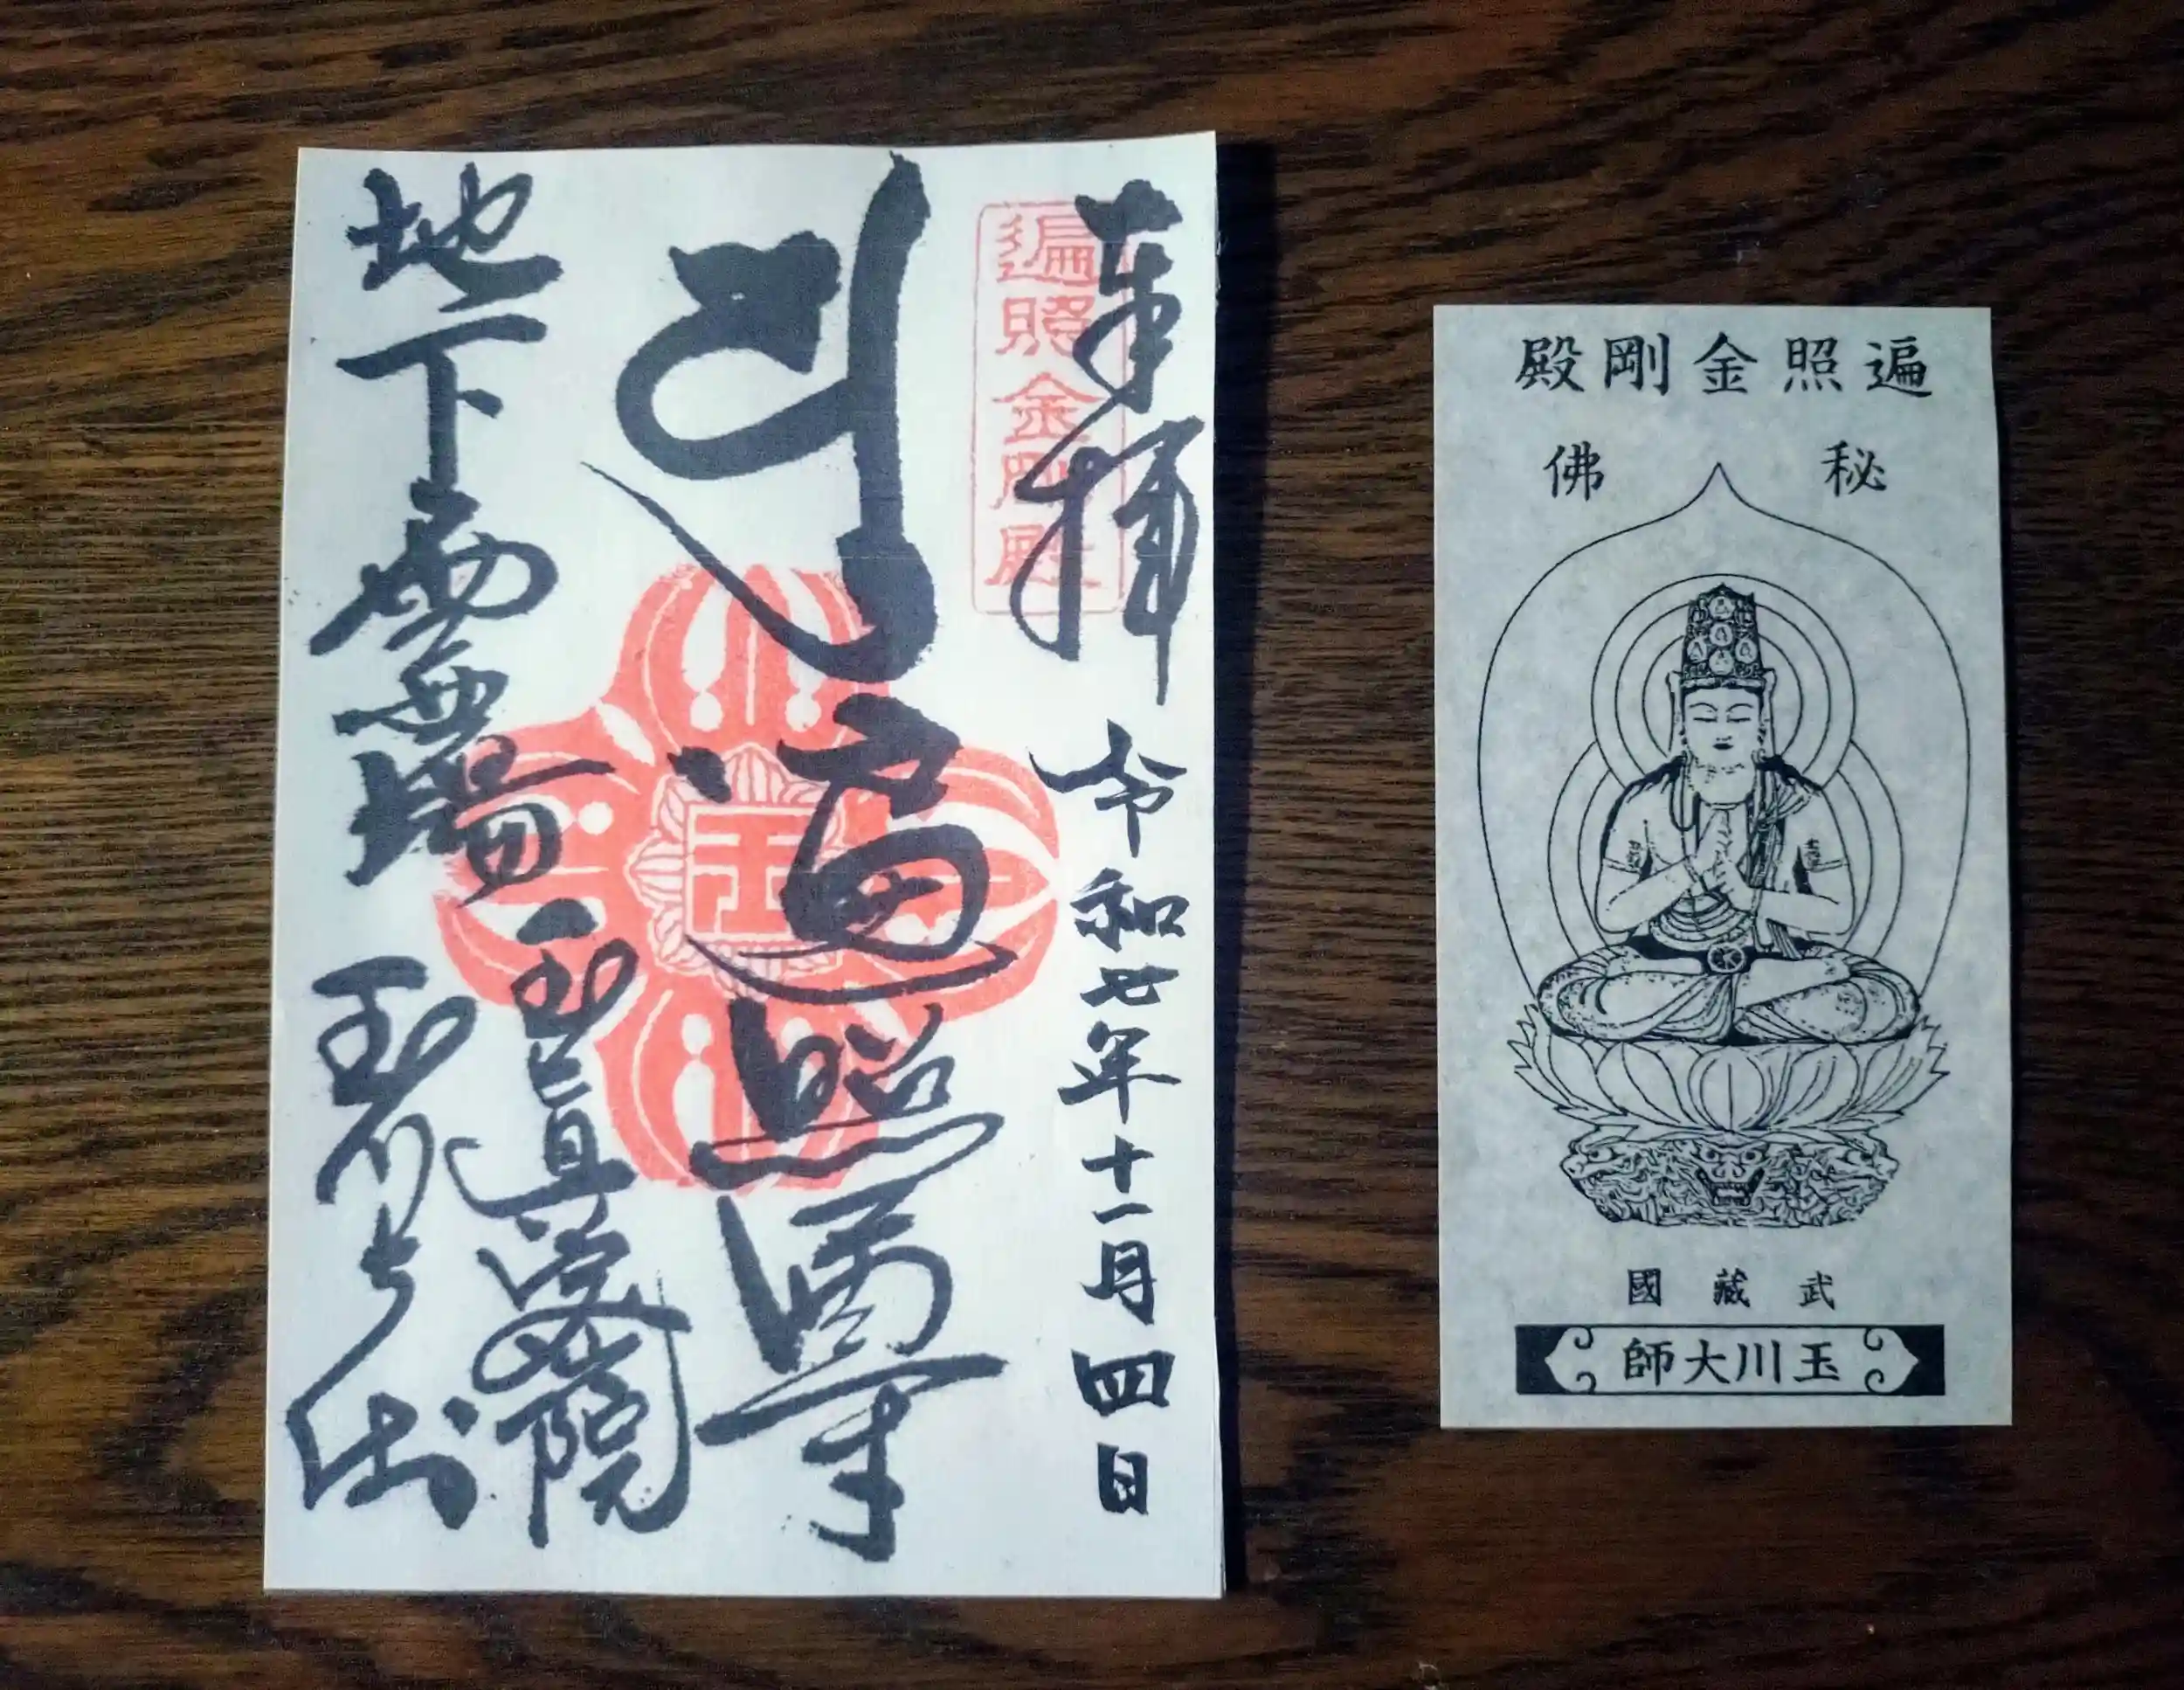 奉拝 令和七年十一月四日
遍照金剛殿
遍照
玉
地下霊場
玉眞密院
玉川大師
遍照金剛殿
秘佛
武藏國
玉川大師